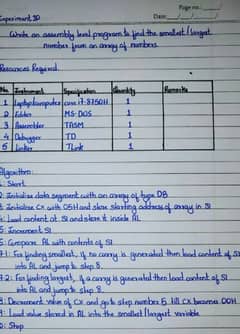 Page no.:
Experiment 3D
Date:
Write an assembly level program to find the smallest / largest
number from an array of numbers.
Resources Required.
No. Instrument Specification Quantity Remarks
1 Laptop/computer core i7-8750H 1
2 Editor MS-DOS 1
3 Assembler TASM 1
4 Debugger TD 1
5 Linker TLink 1
Algorithm:
1: Start
2: Initialize data segment with an array of type DB
3: Initialize CX with 05H and store starting address of array in SI
4: Load content at SI and store it inside AL
5: Increment SI
6: Compare AL with contents of SI
7.1: For finding smallest, if no carry is generated then load content of SI
into AL and jump to step 8.
7.2: For finding largest, if a carry is generated then load content of SI
into AL and jump to step 8.
8: Decrement value of CX and go to step number 5 till CX becomes 00H
9: Load value stored in AL into the smallest / largest variable
10: Stop